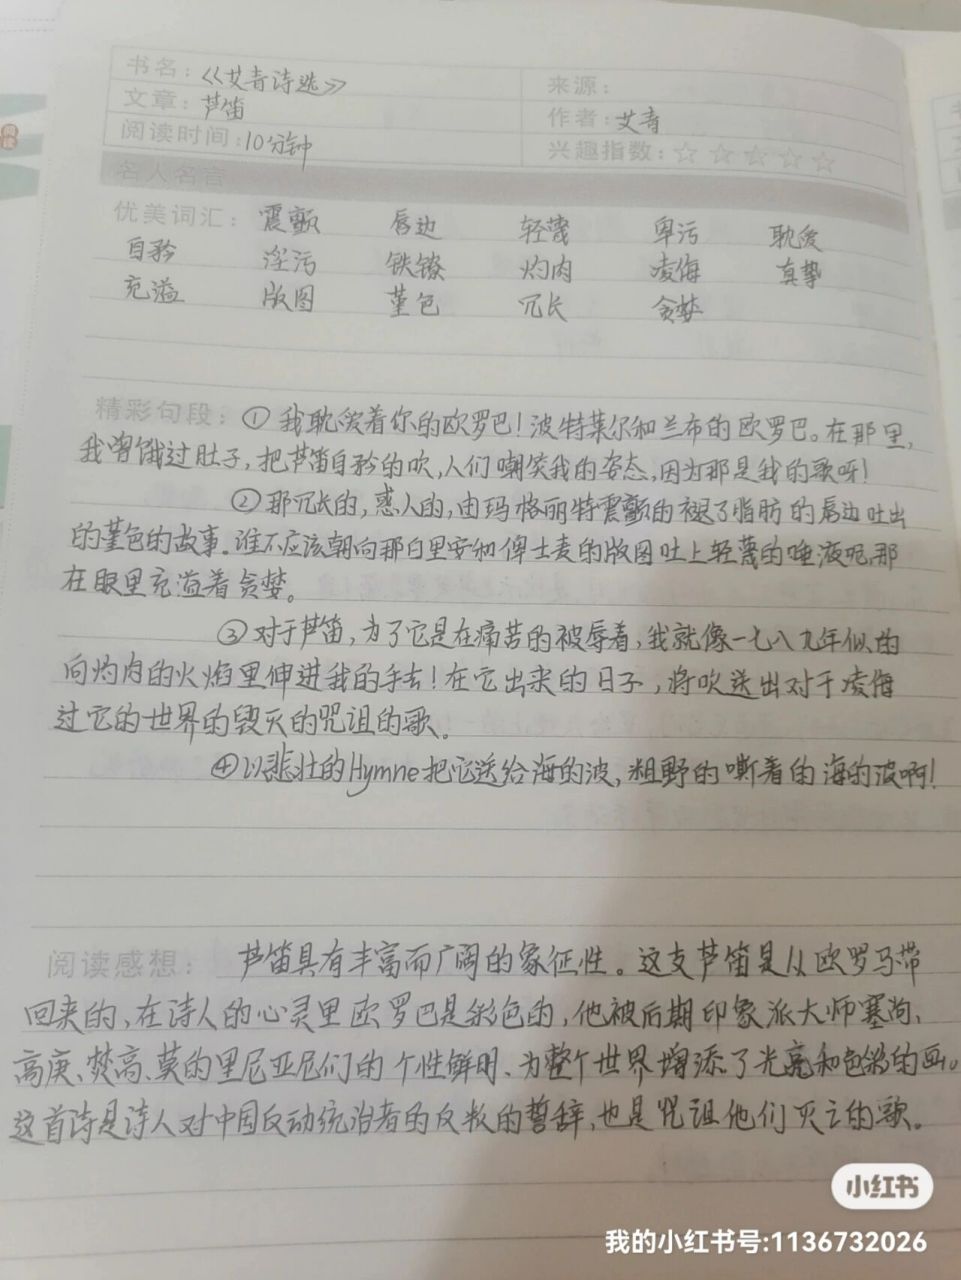 书名：《艾青诗选》 来源：
文章：芦笛 作者：艾青
阅读时间：10分钟 兴趣指数：☆☆☆☆☆
名人名言
优美词汇： 震颤 唇边 轻蔑 卑污 耽爱
自矜 淫污 铁镣 灼肉 凌侮 真挚
充溢 版图 堇色 冗长 贪婪
精彩句段：①我耽爱着你的欧罗巴！波特莱尔和兰布的欧罗巴。在那里，
我曾饿过肚子，把芦笛自矜的吹，人们嘲笑我的姿态，因为那是我的歌呀！
②那冗长的，惑人的，由玛格丽特震颤的褪了脂肪的唇边吐出
的堇色的故事。谁不应该朝向那白里安和俾士麦的版图吐上轻蔑的唾液呢，那
在眼里充溢着贪婪。
③对于芦笛，为了它是在痛苦的被辱着，我就像一七八九年似的
向灼肉的火焰里伸进我的手去！在它出来的日子，将吹送出对于凌侮
过它的世界的毁灭的咒诅的歌。
④以悲壮的Hymne把它送给海的波，粗野的嘶着的海的波啊！
阅读感想： 芦笛具有丰富而广阔的象征性。这支芦笛是从欧罗马带
回来的，在诗人的心灵里欧罗巴是彩色的，他被后期印象派大师塞尚、
高庚、梵高、莫的里尼亚尼们的个性鲜明、为整个世界增添了光亮和色彩的画。
这首诗是诗人对中国反动统治者的反叛的誓辞，也是咒诅他们灭亡的歌。
小红书
我的小红书号:1136732026